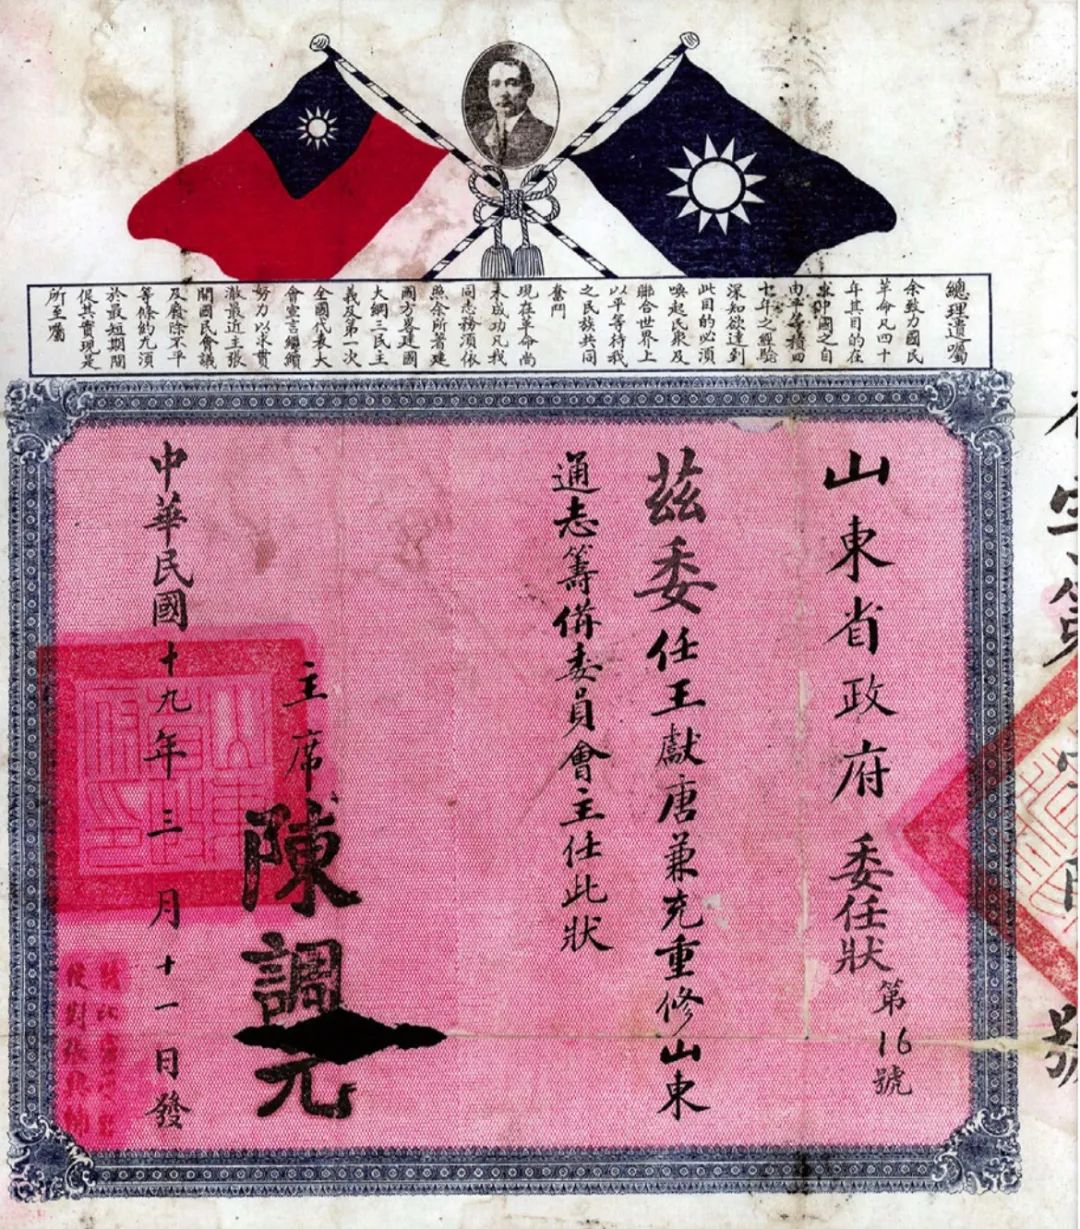 總理遺囑
余致力國民
革命凡四十
年其目的在
求中國之自
由平等積四
十年之經驗
深知欲達到
此目的必須
喚起民眾及
聯合世界上
以平等待我
之民族共同
奮鬥
現在革命尚
未成功凡我
同志務須依
照余所著建
國方畧建國
大綱三民主
義及第一次
全國代表大
會宣言繼續
努力以求貫
澈最近主張
開國民會議
及廢除不平
等條約尤須
於最短期間
促其實現是
所至囑
字第 號
山東省政府 委任狀 第16號
茲委任王獻唐兼充重修山東
通志籌備委員會主任此狀
主席 陳調元
中華民國十九年三月十一日發